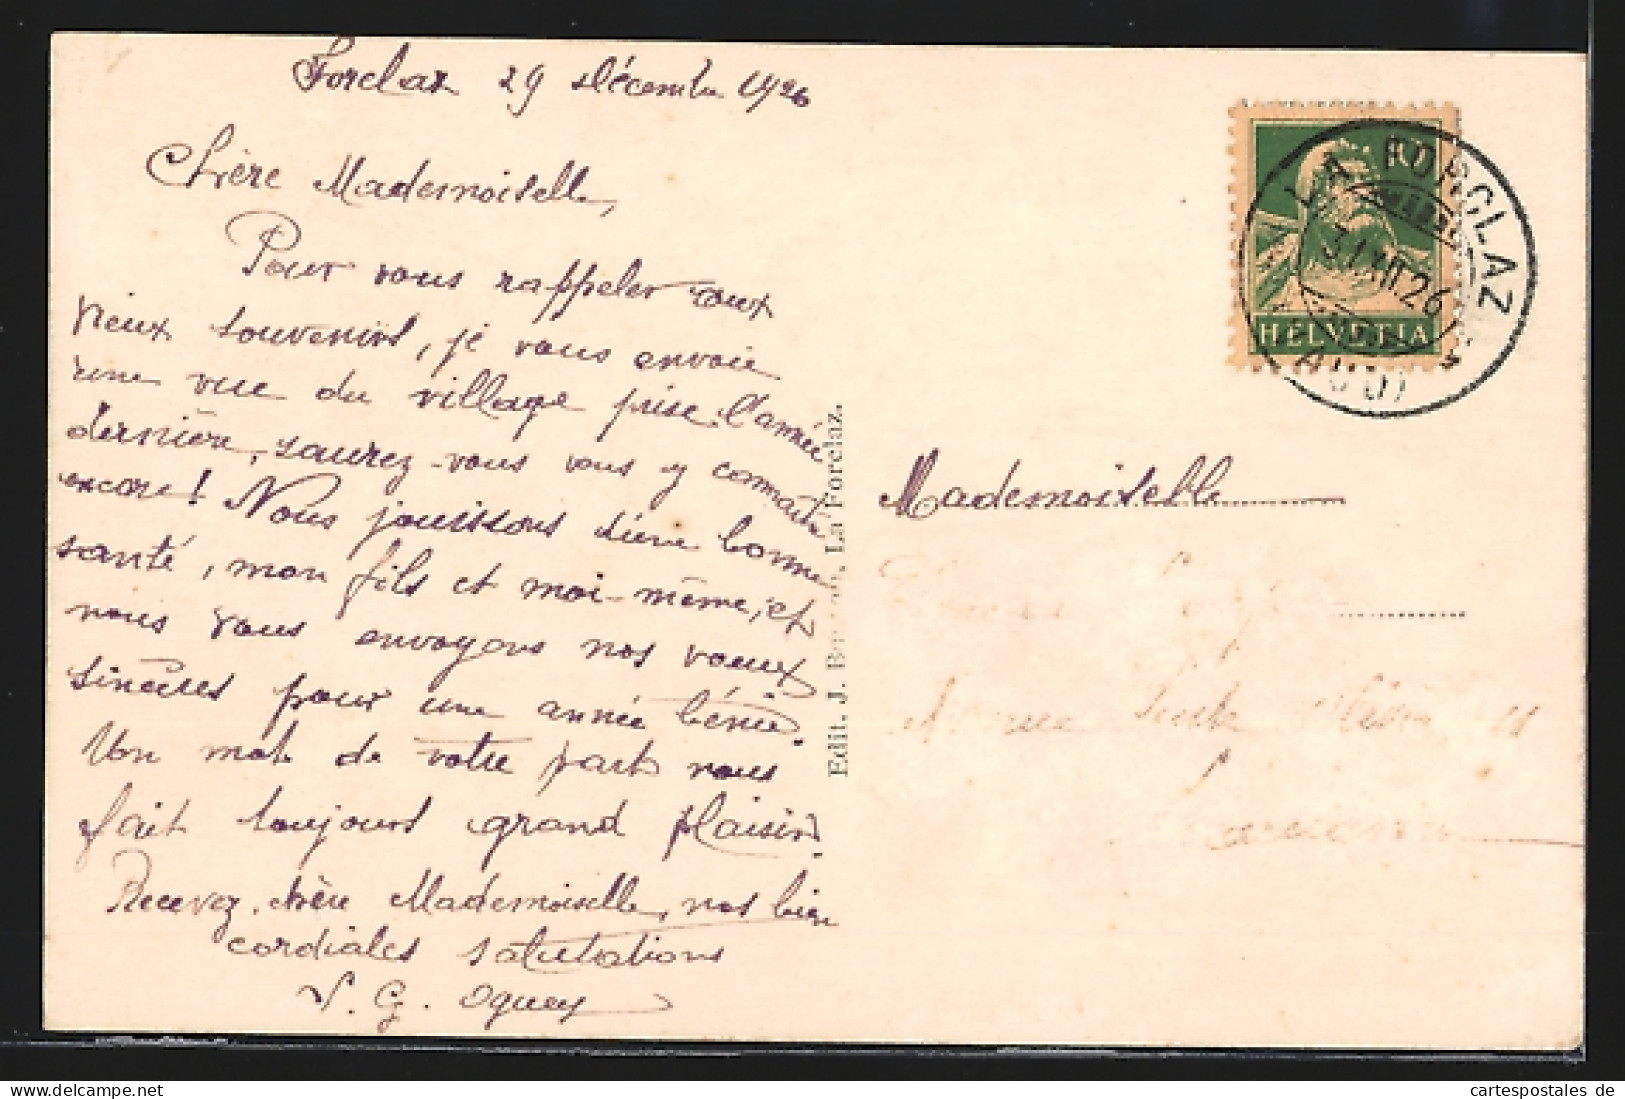 Forclaz 29 Décembre 1926
Chère Mademoiselle,
Pour vous rappeler aux
vieux souvenirs, je vous envoie
une vue du village prise l'année
dernière, saurez-vous vous y connaître
encore! Nous jouissons d'une bonne
santé, mon fils et moi-même, et
nous vous envoyons nos vœux
sincères pour une année bénie.
Un mot de votre part nous
fait toujours grand plaisir.
Recevez, chère Mademoiselle, nos bien
cordiales salutations
G. Oguey
Edit. J. La Forclaz.
10
HELVETIA
LA FORCLAZ
31.XII.26
(VAUD)
Mademoiselle
Avenue 11
Lausanne
cartespostales de